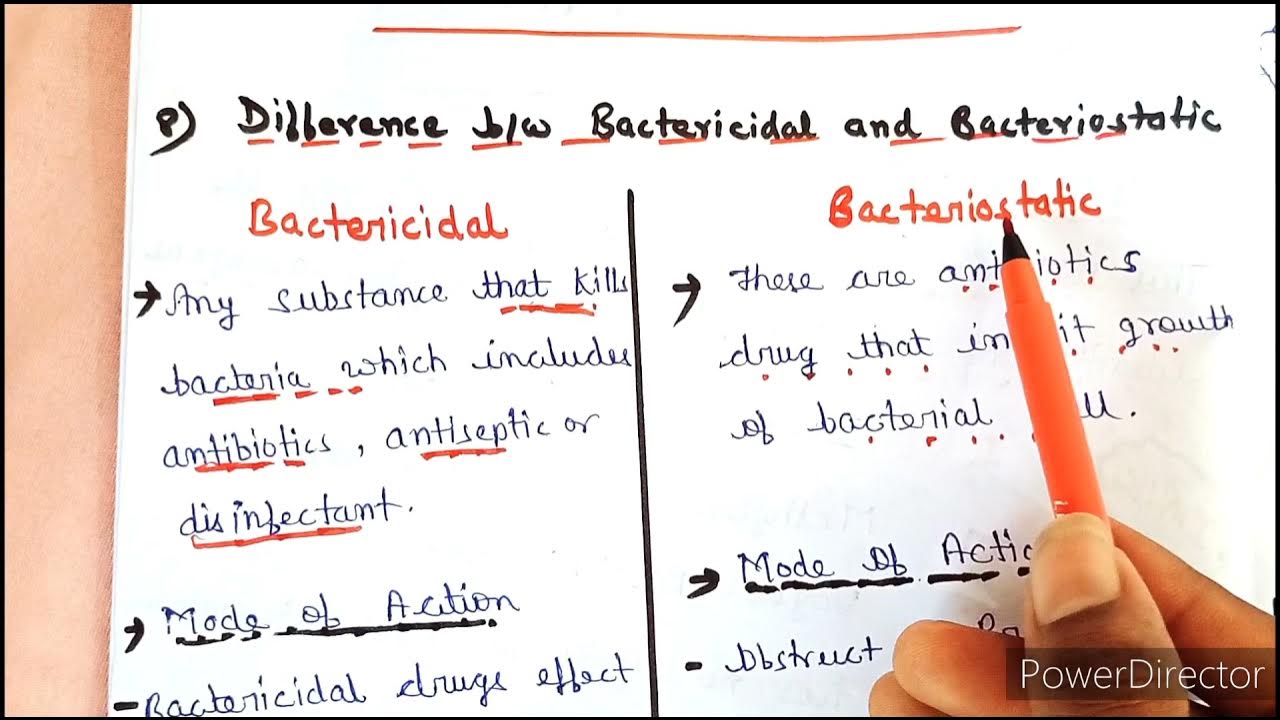 8) Difference b/w Bactericidal and Bacteriostatic
Bactericidal
→ Any substance that kills
bacteria which includes
antibiotics, antiseptic or
disinfectant.
→ Mode of Action
- Bactericidal drugs effect
Bacteriostatic
→ These are antibiotics
drug that growth
of bacterial
→ Mode of
- Obstruct
PowerDirector